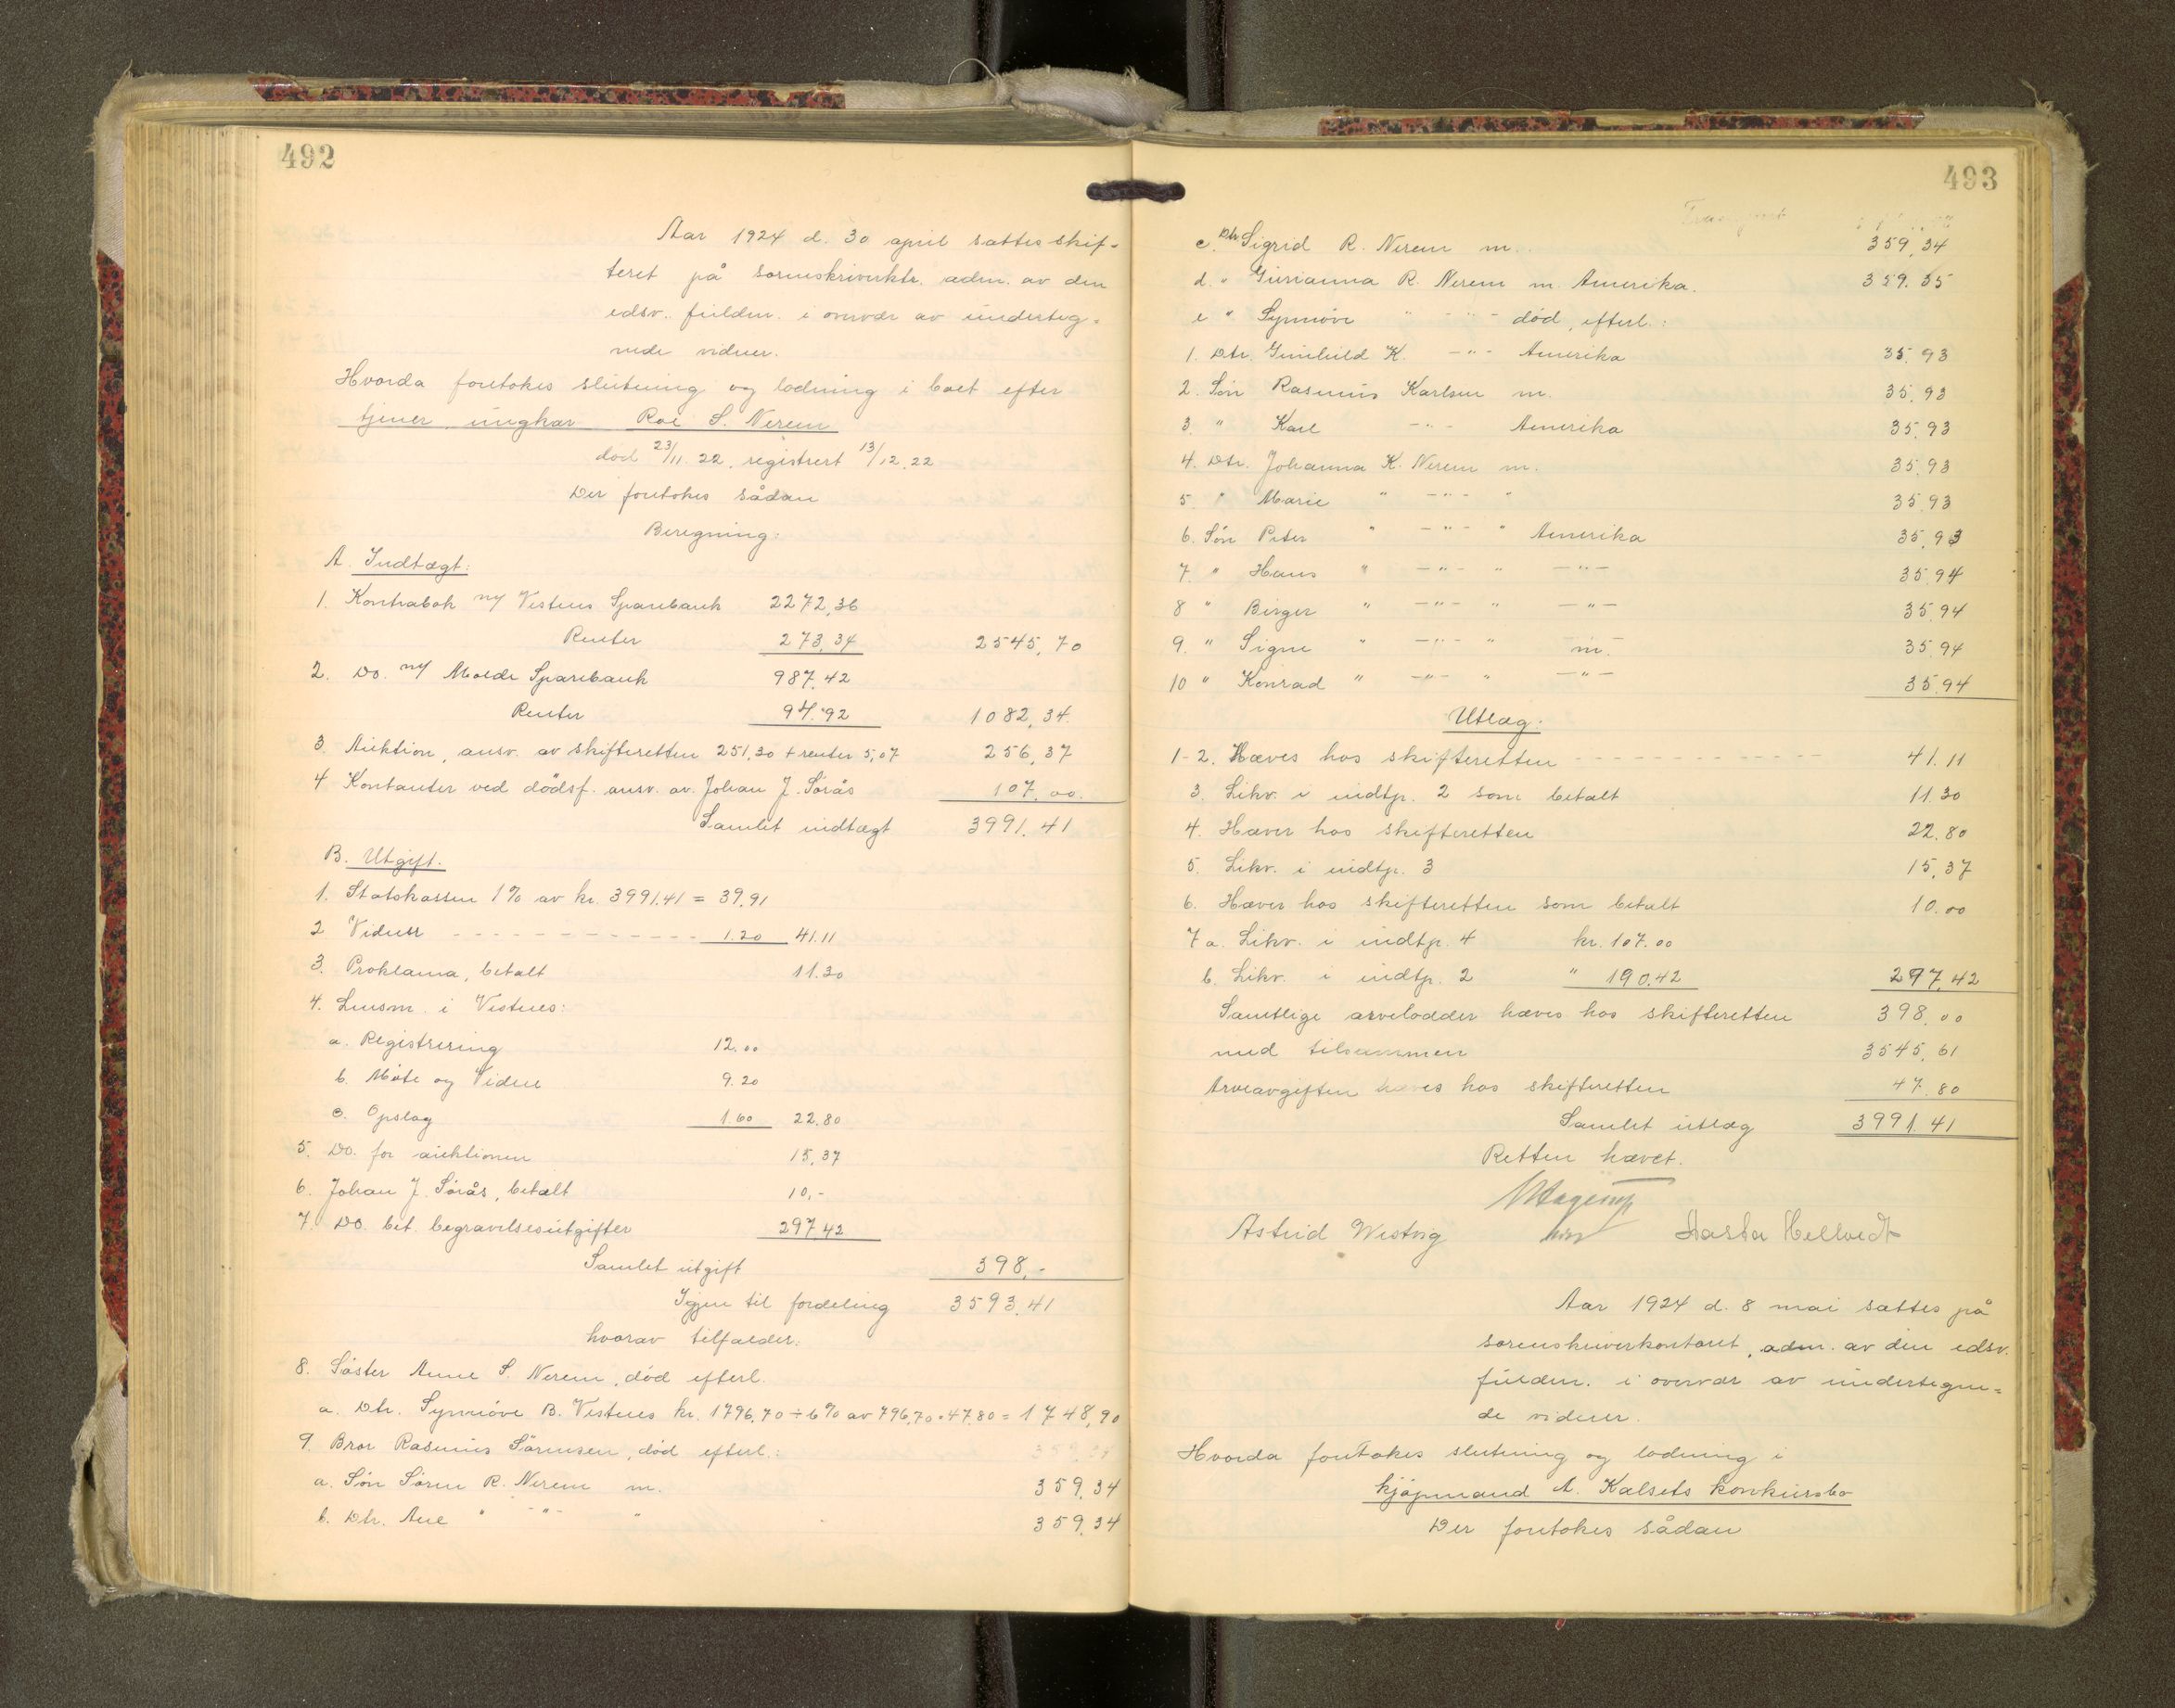 492
Aar 1924 d. 30 april sattes skif-
teret på sorenskriverktr. adm. av den
edsv. fuldm. i overvær av underteg-
nede vidner.
Hvorda foretokes slutning og lodning i boet efter
tjener, ungkar Roe S. Nerem
død 23/11. 22, registrert 13/12. 22
Der foretokes sådan
Beregning:
A. Indtægt:
1. Kontrabok m/ Vestnes Sparebank 2272,36
Renter 273,34 2545,70
2. Do. m/ Molde Sparebank 987.42
Renter 94.92 1082,34.
3. Auktion, ansv. av skifteretten 251,30 + renter 5,07 256,37
4 Kontanter ved dødsf. ansv. av Johan J. Sørås 107,00.
Samlet indtægt 3991.41
B. Utgift.
1. Statskassen 1% av kr. 3991.41 = 39.91
2 Vidner - - - - - - - - - - - - 1.20 41.11
3. Proklama, betalt 11.30
4. Lensm. i Vestnes:
a. Registrering 12.00
b. Møte og Vidne 9.20
c. Opslag 1.60 22.80
5. Do. for auktionen 15,37
6. Johan J. Sørås, betalt 10,-
7. Do. bet. begravelsesutgifter 297.42
Samlet utgift 398,-
Igjen til fordeling 3593.41
hvorav tilfalder:
8. Søster Anne S. Nerem, død efterl.
a. Dtr. Synnøve B. Vestnes kr. 1796,70 ÷ 6% av 796,70 = 47.80 = 1748,90
9. Bror Rasmus Sørensen, død efterl.:
a. Søn Søren R. Nerem m. 359.34
b. Dtr. Ane " -"- " 359.34
493
c. Dtr Sigrid R. Nerem m. 359.34
d. " Gurianna R. Nerem m. Amerika. 359.35
e " Synnøve " -"- død, efterl.:
1. Dtr. Gunhild K. -"- Amerika 35.93
2. Søn Rasmus Karlsen m. 35.93
3 " Karl -"- Amerika 35.93
4. Dtr. Johanna K. Nerem m. 35.93
5 " Marie " -"- " 35.93
6. Søn Peter " -"- " Amerika 35.93
7. " Hans " -"- " -"- 35.94
8 " Birger " -"- " -"- 35.94
9. " Signe " -"- " m. 35.94
10 " Konrad " -"- " -"- 35.94
Utlæg.
1-2. Hæves hos skifteretten - - - - - - - - - - - - 41.11
3. Likv. i indtp. 2 som betalt 11.30
4. Hæver hos skifteretten 22.80
5. Likv. i indtp. 3 15,37
6. Hæver hos skifteretten som betalt 10.00
7 a. Likv. i indtp. 4 kr. 107.00
b. Likv. i indtp. 2 " 190.42 297.42
Samtlige arvelodder hæves hos skifteretten 398,00
med tilsammen 3545,61
Arveavgiften hæves hos skifteretten 47.80
Samlet utlæg 3991.41
Retten hævet.
Astrid Westvig Aasta Hellvedt
Aar 1924 d. 8 mai sattes på
sorenskriverkontoret, adm. av den edsv.
fuldm. i overvær av undertegne-
de vidner.
Hvorda foretokes slutning og lodning i
kjøpmand A. Kalsets konkursbo
Der foretokes sådan